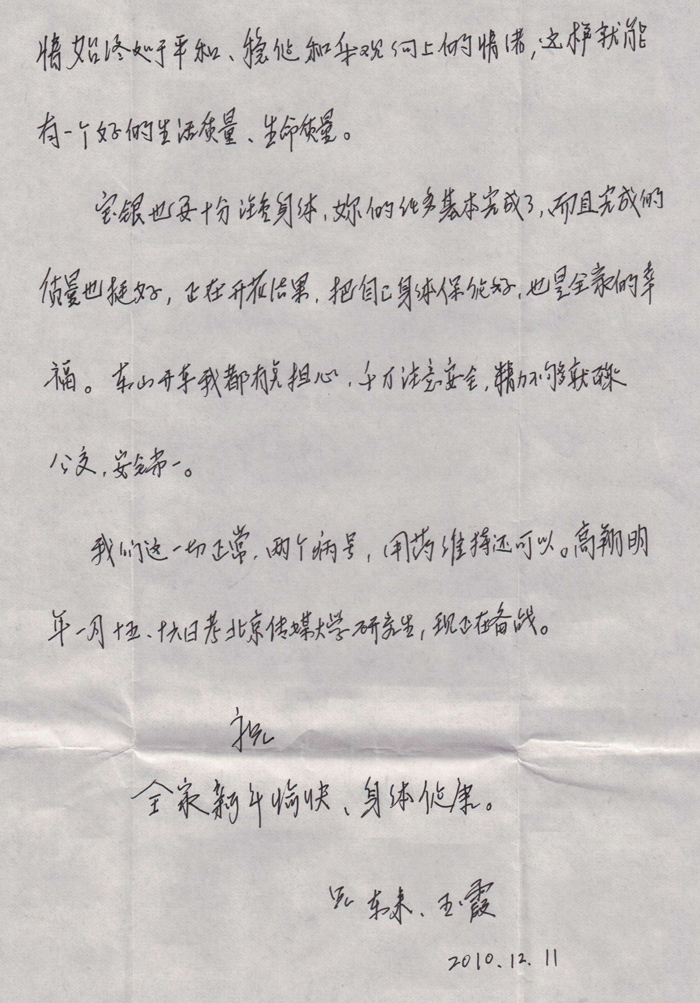 情始终处于平和、稳定和乐观向上的情绪，这样就能
有一个好的生活质量、生命质量。
宝银也要十分注意身体，妳的任务基本完成了，而且完成的
质量也挺好，正在开花结果，把自己身体保能好，也是全家的幸
福。东山开车我都有点担心，千万注意安全，精力不够就乘
公交，安全第一。
我们这一切正常，两个病号，用药维持还可以。高翔明
年一月十五、十六日考北京传媒大学研究生，现正在备战。
祝
全家新年愉快、身体健康。
兄 东来、玉霞
2010.12.11